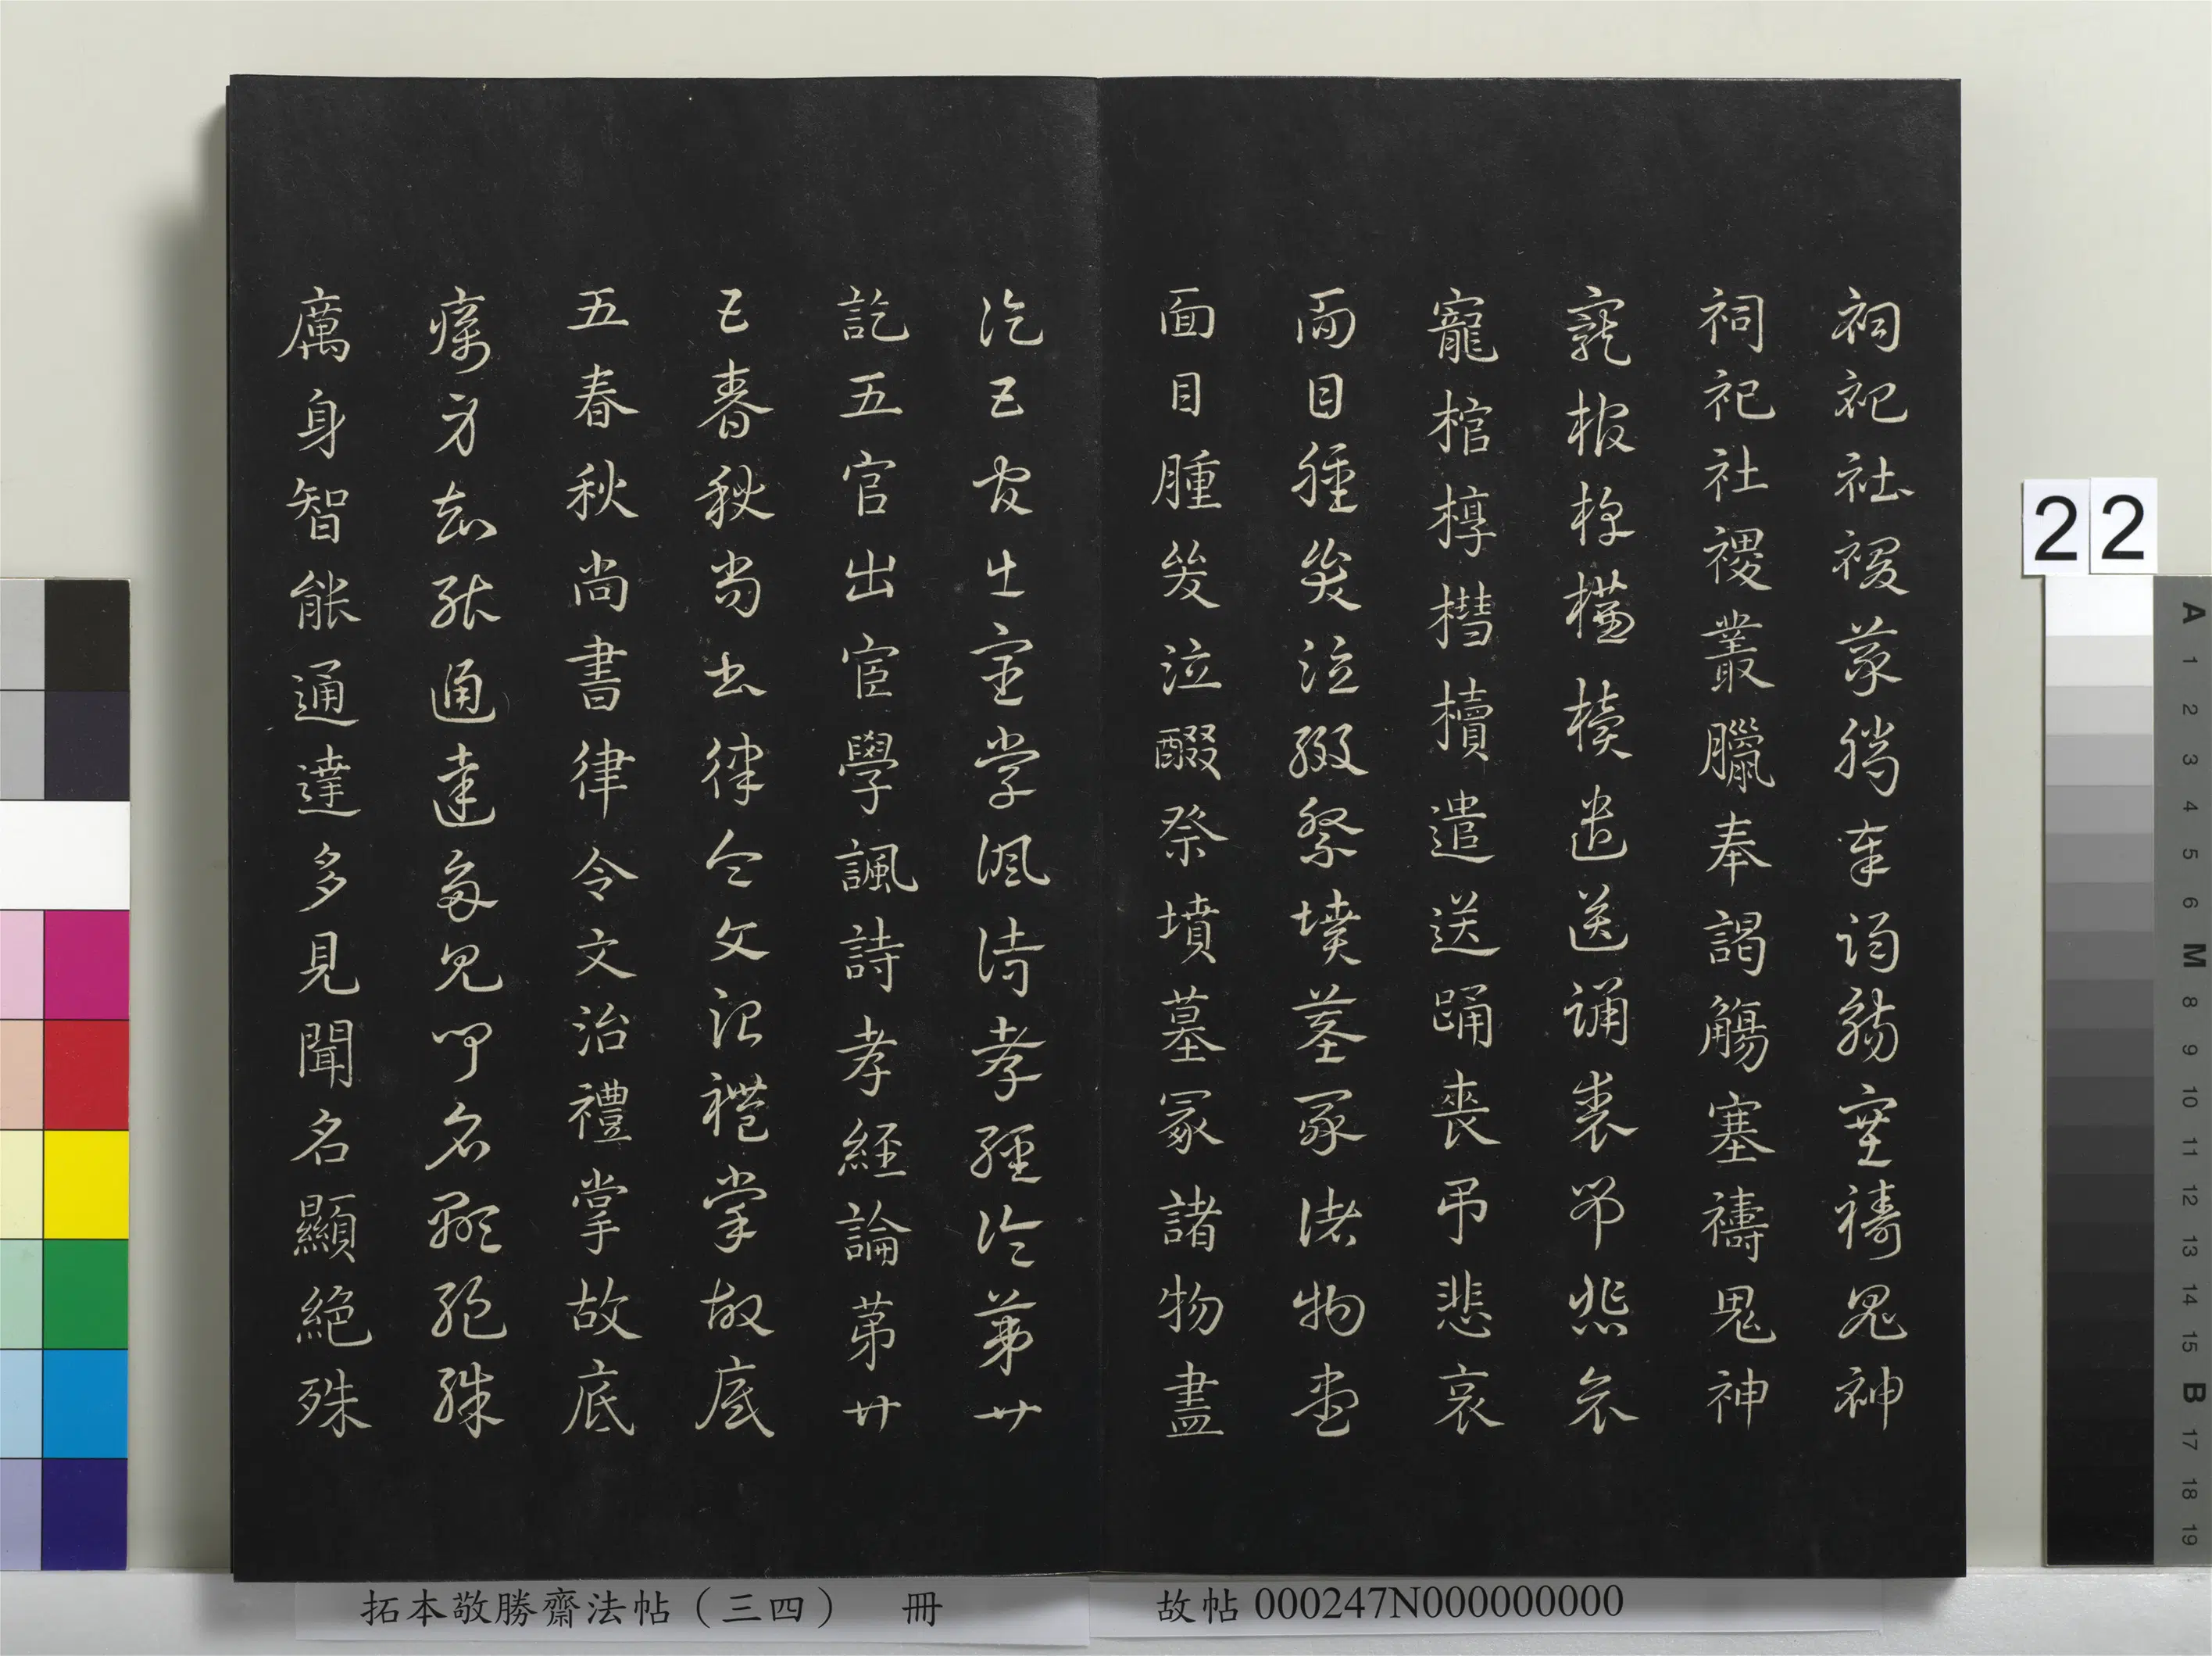 祠祀社稷叢臘奉謁觴塞禱鬼神
祠祀社稷叢臘奉謁觴塞禱鬼神
寵棺椁槥櫝遣送踊喪吊悲哀
寵棺椁槥櫝遣送踊喪吊悲哀
面目腫哭泣醊祭墳墓冢諸物盡
面目腫哭泣醊祭墳墓冢諸物盡
訖五官出宦學諷詩孝經論苐廿
訖五官出宦學諷詩孝經論苐廿
五春秋尚書律令文治禮掌故底
五春秋尚書律令文治禮掌故底
厲身智能通達多見聞名顯絕殊
厲身智能通達多見聞名顯絕殊
拓本敬勝齋法帖（三四） 冊
故帖000247N000000000
22
A 1 2 3 4 5 6 M 8 9 10 11 12 13 14 15 B 17 18 19